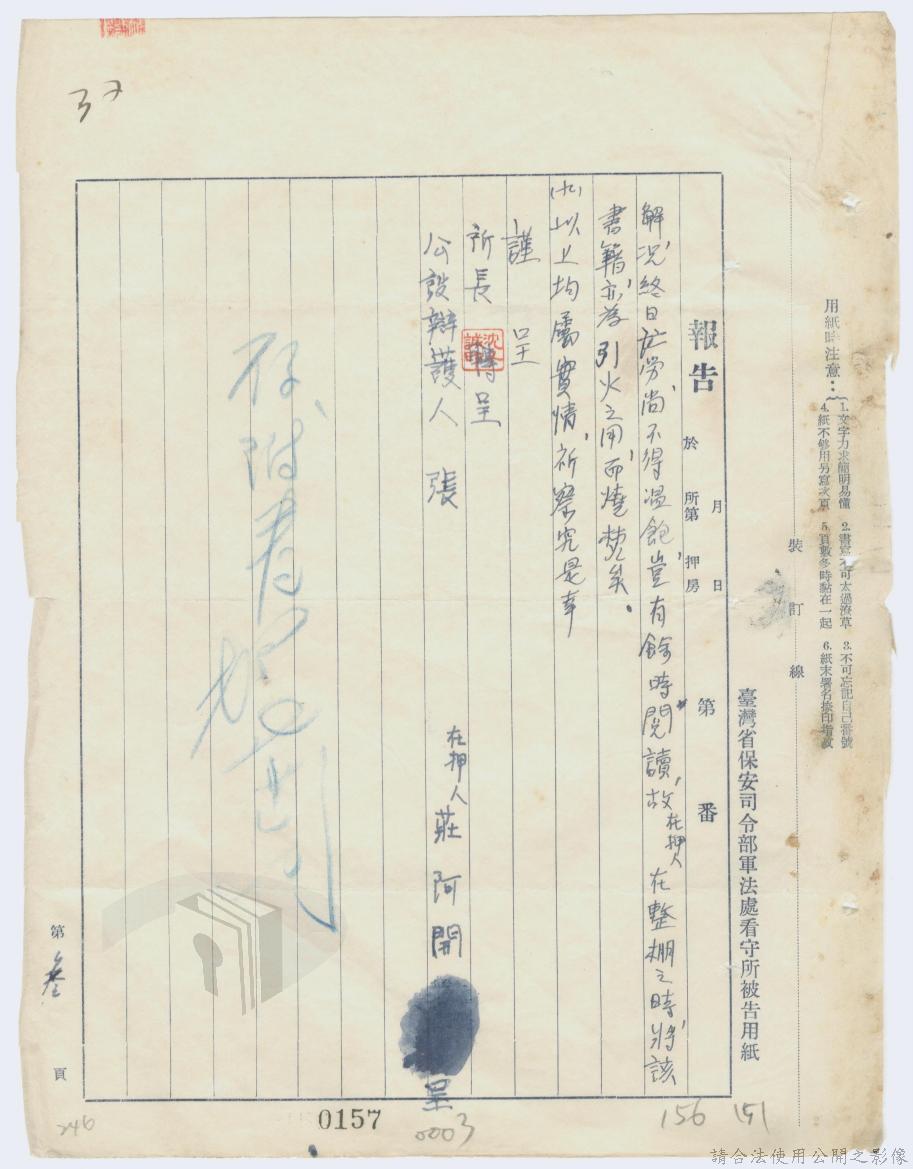 用紙時注意：
1. 文字力求簡明易懂 2. 書寫不可太過潦草 3. 不可忘記自己番號
4. 紙不够用另寫次頁 5. 頁數多時黏在一起 6. 紙末署名捺印指紋
裝 訂 線
臺灣省保安司令部軍法處看守所被告用紙
報告 於 月 日
所第 押房 第 番
解況終日於勞尚不得温飽豈有餘時閱讀故在押人在整棚之時將該
書籍亦為引火之用而燒焚矣。
(九)以上均屬實情祈察究是幸
謹 呈
所長 轉呈
公設辯護人 張
在押人 莊阿開 呈
存附卷
第 叁 頁
37
246
0157
0003
156
151
請合法使用公開之影像